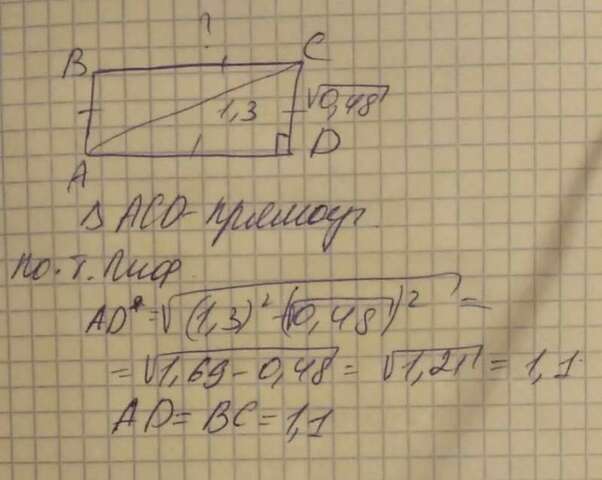 ?
B C
1,3 √0,48
A D
Δ ACD - прямоуг.
По. т. Пиф.
AD = √(1,3)² - (√0,48)² =
= √1,69 - 0,48 = √1,21 = 1,1
AD = BC = 1,1